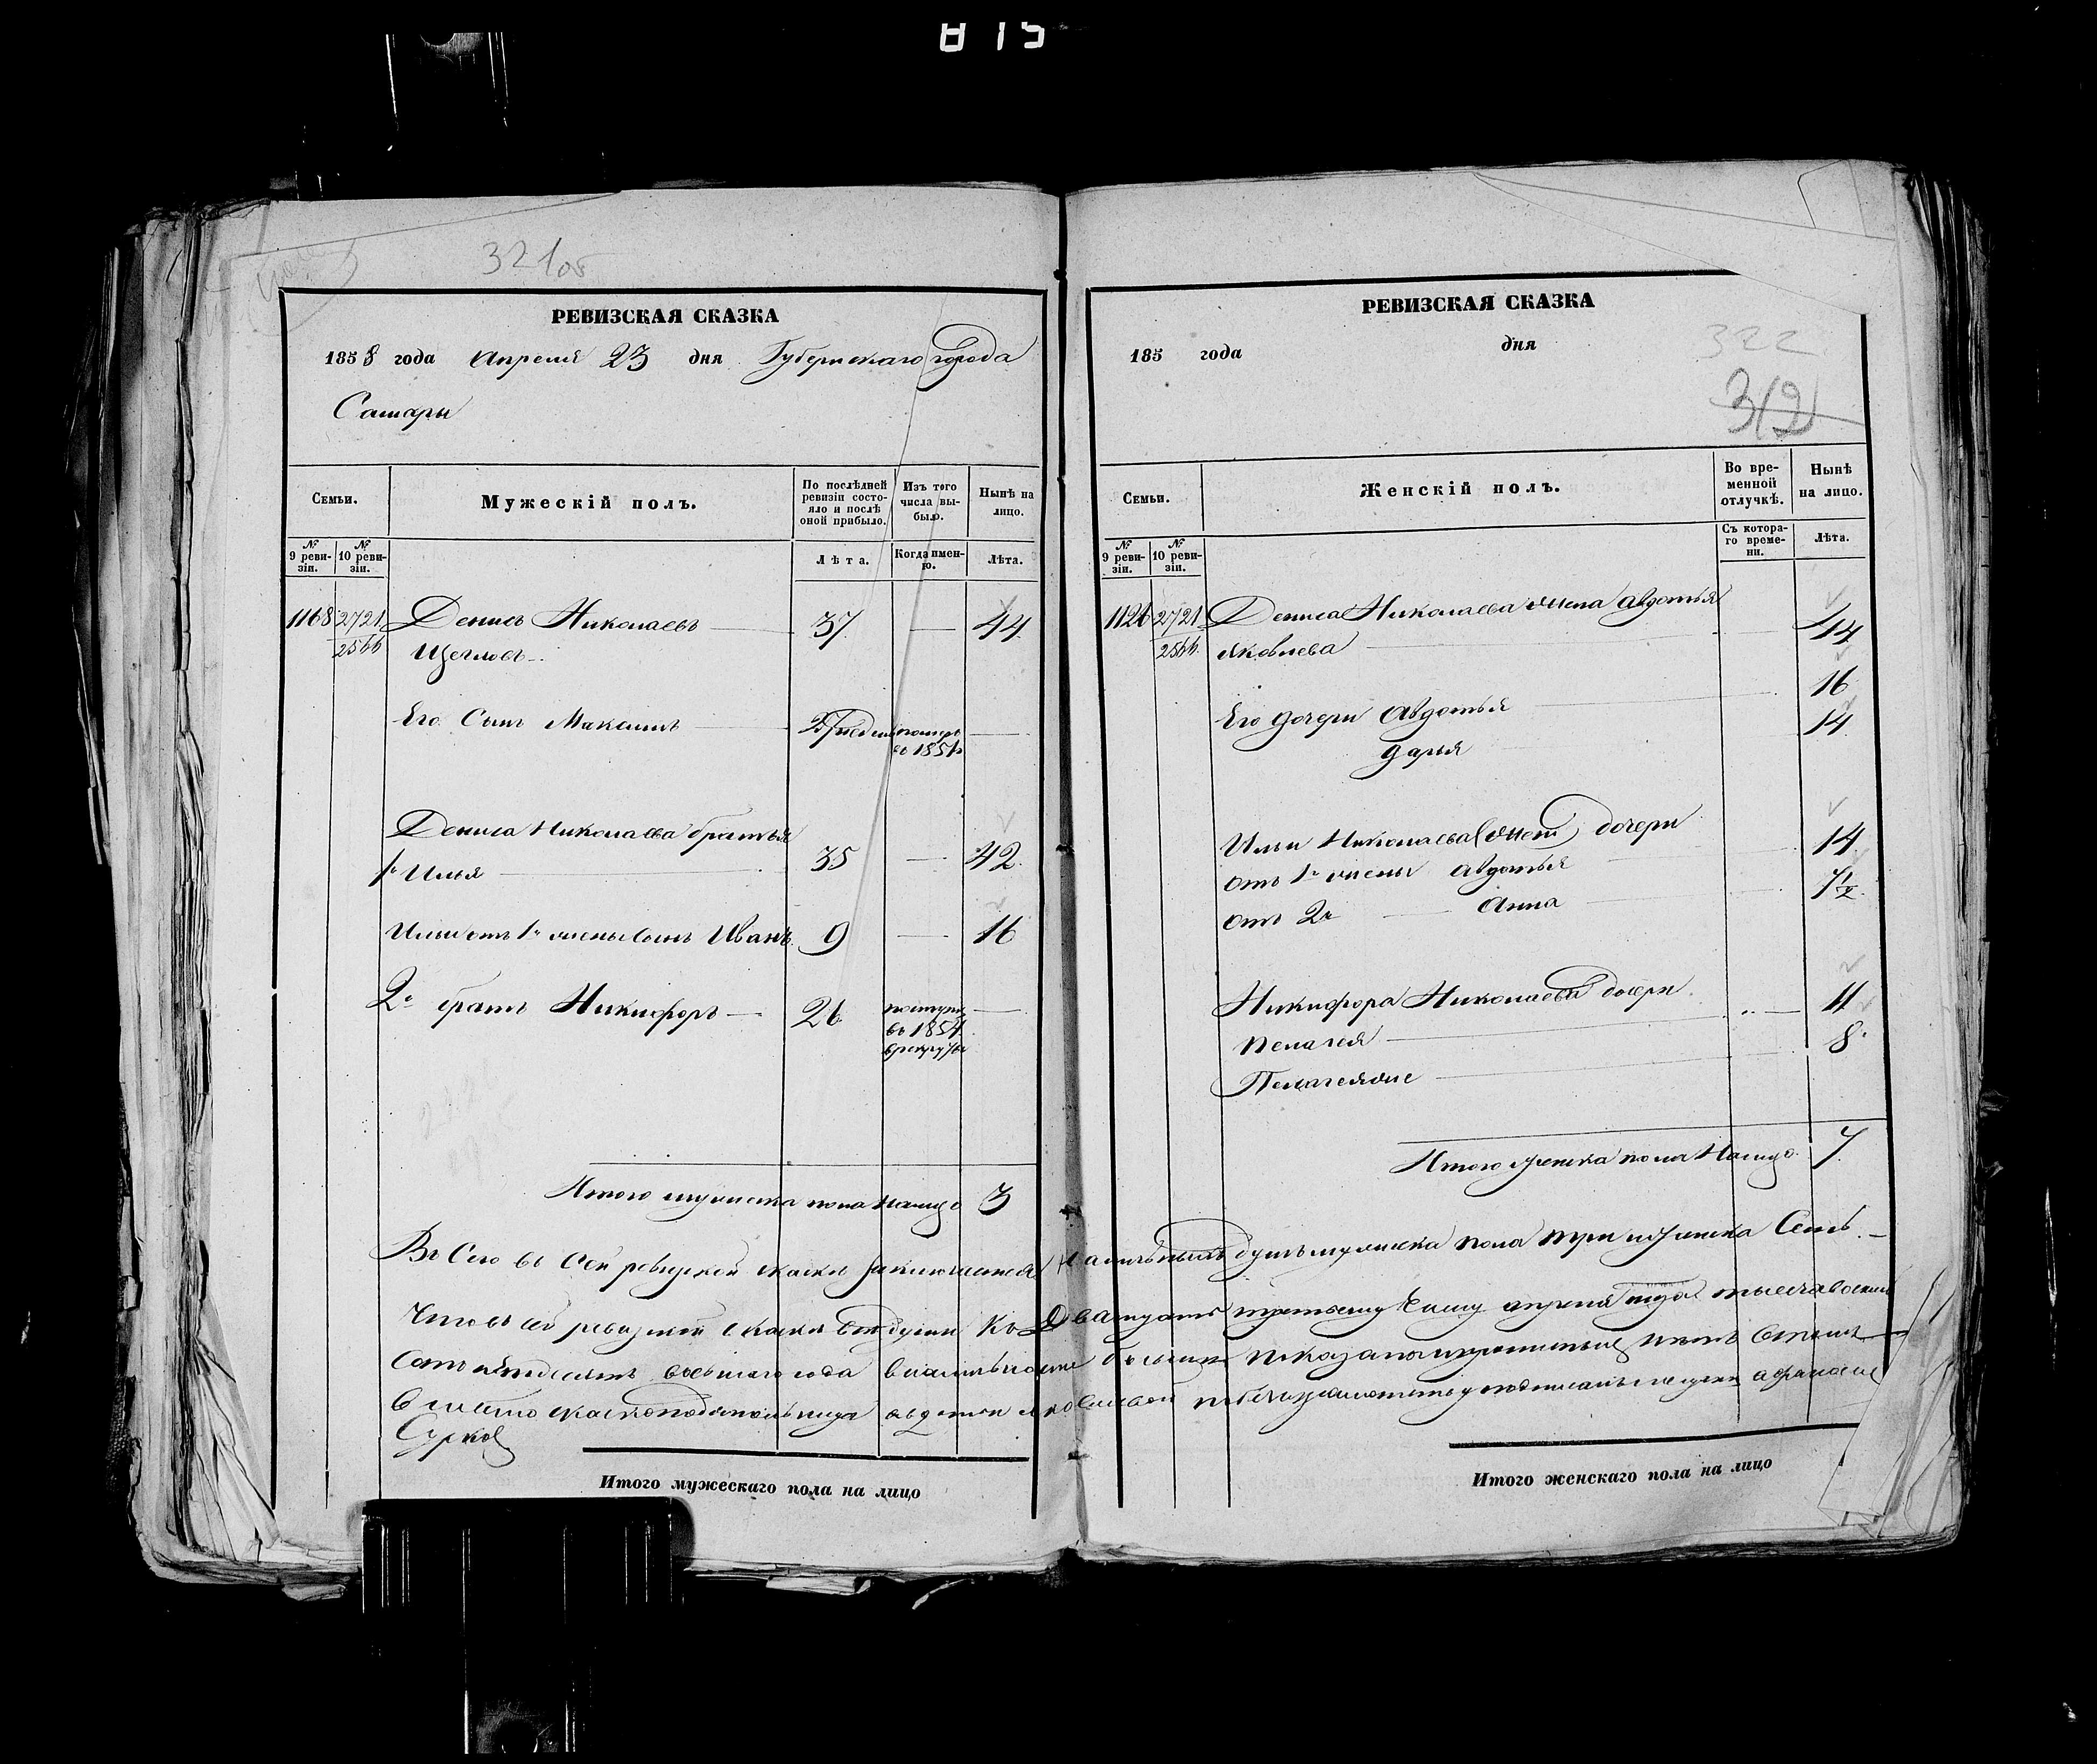 815
321об
РЕВИЗСКАЯ СКАЗКА
1858 года Апреля 23 дня Губернскаго города
Самары
Семьи.
Мужескій полъ.
По послѣдней ревизіи состояло и послѣ оной прибыло.
Изъ того числа выбыло.
Нынѣ на лицо.
№ 9 ревизіи.
№ 10 ревизіи.
Лѣта.
Когда именно.
Лѣта.
1168 2721 Денисъ Николаевъ — 37 — 44
2566 Щегловъ
Его Сынъ Максимъ — померъ —
въ 1854
Дениса Николаева братья
1й Илья — 35 — 42
Ильи отъ 1й жены сынъ Иванъ 9 — 16
2й братъ Никифоръ — 26 поступ. —
въ 1854
в рекруты
Итого мужска пола налицо 3
РЕВИЗСКАЯ СКАЗКА
185 года дня
322
312
Семьи.
Женскій полъ.
Во временной отлучкѣ.
Нынѣ на лицо.
№ 9 ревизіи.
№ 10 ревизіи.
Съ котораго времени.
Лѣта.
1126 2721 Дениса Николаева жена Авдотья
2566 Яковлева — 44
Его дочери Авдотья — 16
Дарья 14
Ильи Николаева дочери
отъ 1й жены Авдотья — 14
отъ 2й — Анна — 7
Никифора Николаева дочери
Пелагея — 11
Пелагея же — 8
Итого женска пола Налицо 7
Въ Сего въ Сей ревизской сказки заключается Наличныхъ душъ мужска пола три и женска Семь. —
Что въ сей ревизской сказки все души къ Двадцать третьему Числу апреля тысяча восемь
Сотъ пятдесятъ восьмаго года
Итого мужескаго пола на лицо
Итого женскаго пола на лицо